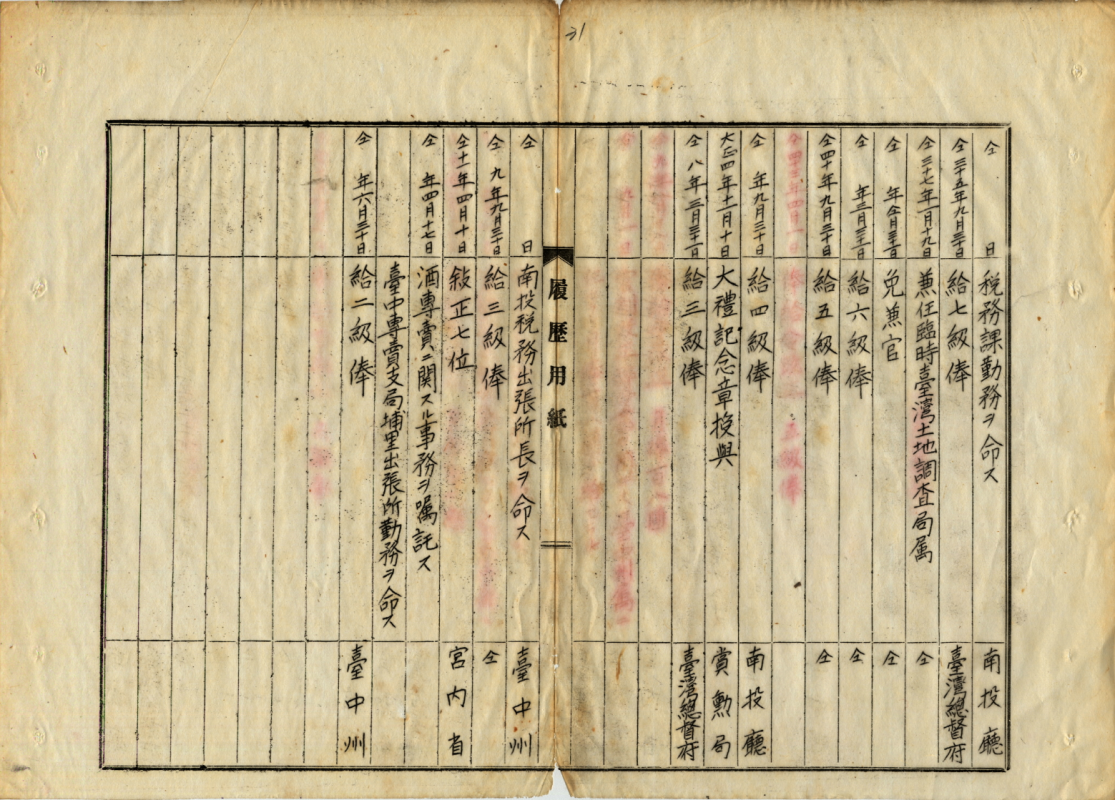 31
仝 日 税務課勤務ヲ命ス 南投廳
仝三十五年九月三十日 給七級俸 臺灣總督府
仝三十七年一月十九日 兼任臨時臺灣土地調査局属 仝
仝 年 月三十一日 免兼官 仝
仝 年三月三十一日 給六級俸 仝
仝四十年九月三十日 給五級俸 仝
仝 年九月三十日 給四級俸 南投廳
大正四年十一月十日 大禮記念章授與 賞勲局
仝 八年三月三十一日 給三級俸 臺灣總督府
履歴用紙
仝 日 南投税務出張所長ヲ命ス 臺中州
仝 九年九月三十日 給三級俸 仝
仝十一年四月十日 敍正七位 宮内省
仝 年四月十七日 酒專賣ニ関スル事務ヲ嘱託ス
臺中專賣支局埔里出張所勤務ヲ命ス
仝 年六月三十日 給二級俸 臺中州